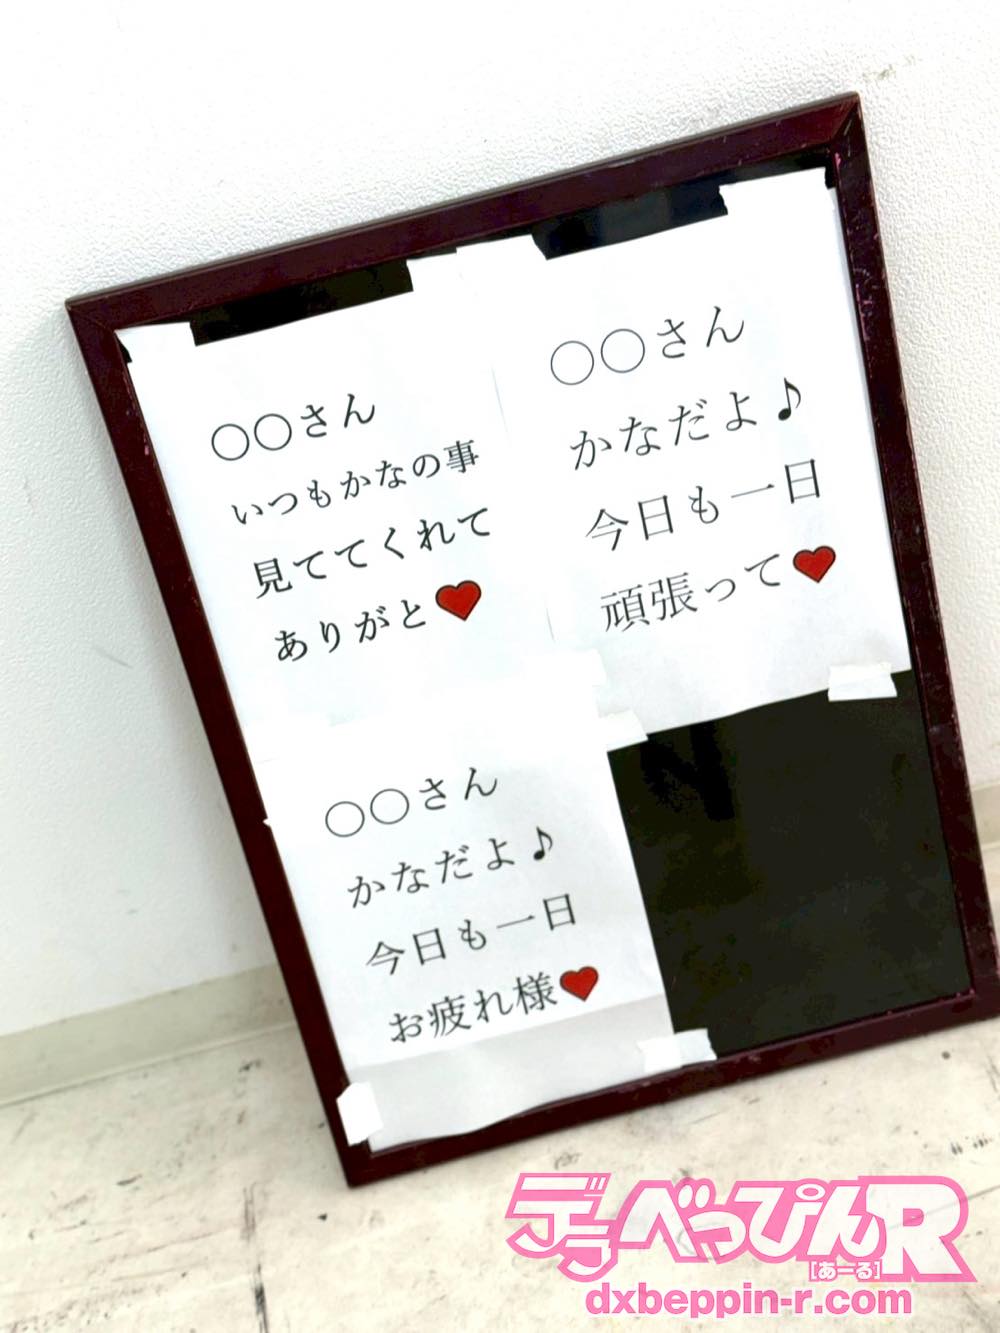 ○○さん
いつもかなの事
見ててくれて
ありがと❤
○○さん
かなだよ♪
今日も一日
頑張って❤
○○さん
かなだよ♪
今日も一日
お疲れ様❤
デラべっぴんR
[あーる]
dxbeppin-r.com